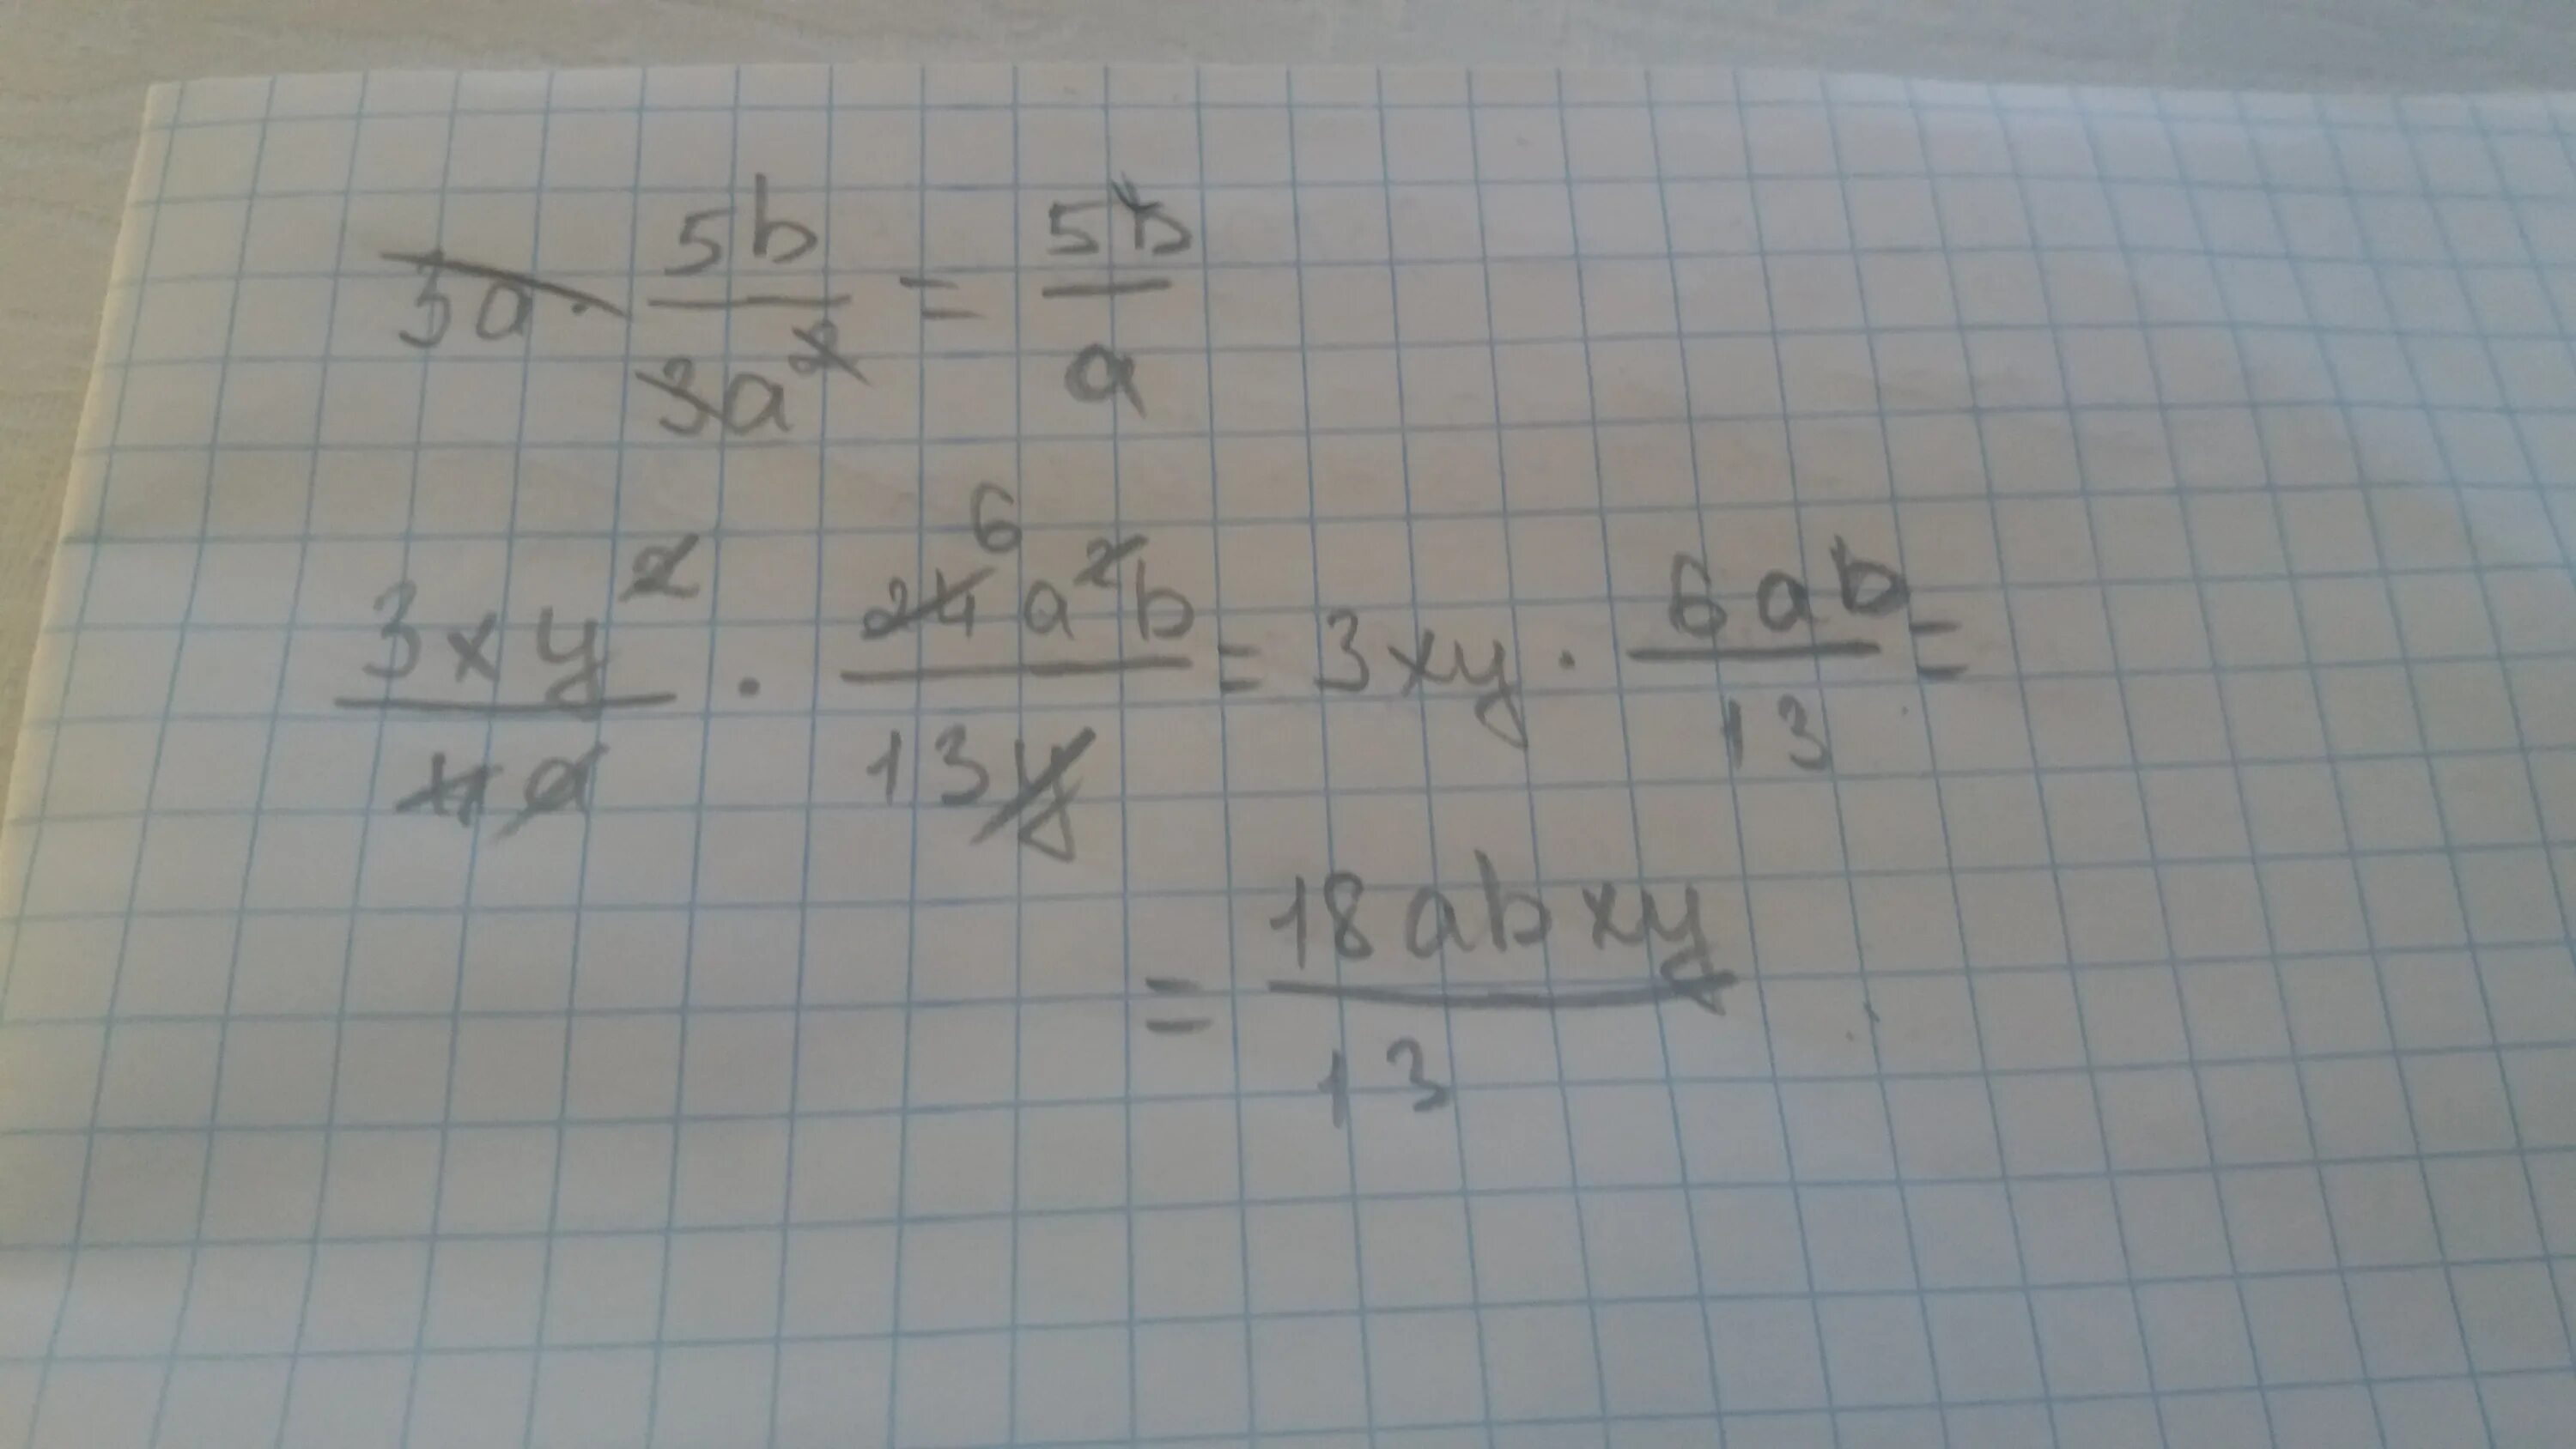 3a · 5b/3a² = 5b/a
3xy²/4a · 24⁶a²b/13y = 3xy · 6ab/13 =
= 18abxy/13